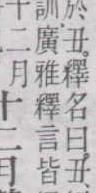 於丑。釋名曰。丑
訓廣雅釋言皆
十二月十二月